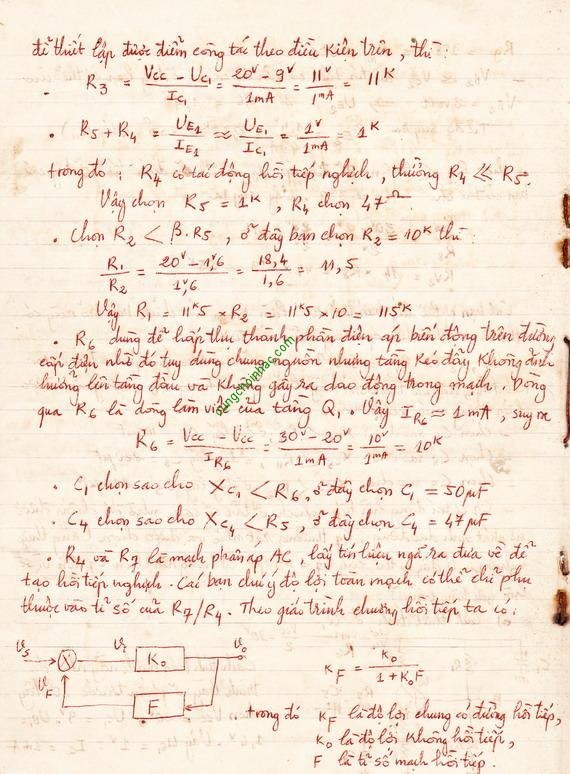 để thiết lập được điểm công tác theo điều kiện trên, thì:
R3 = (Vcc - UC1)/IC1 = (20V - 9V)/1mA = 11V/1mA = 11K
• R5 + R4 = UE1/IE1 ≈ UE1/IC1 = 1V/1mA = 1K
trong đó: R4 có tác động hồi tiếp nghịch, thường R4 ≪ R5.
Vậy chọn R5 = 1K, R4 chọn 47Ω
• Chọn R2 < β.R5, ở đây bạn chọn R2 = 10K thì:
R1/R2 = (20V - 1V,6)/1V,6 = 18,4/1,6 = 11,5
Vậy R1 = 11K5 × R2 = 11K5 × 10 = 115K
• R6 dùng để hấp thu thành phần điện áp biến động trên đường
cấp điện nhờ đó tuy dùng chung nguồn nhưng tầng kéo đẩy không ảnh
hưởng lên tầng đầu và không gây ra dao động trong mạch. Dòng
qua R6 là dòng làm việc của tầng Q1. Vậy IR6 ≈ 1mA, suy ra
R6 = (Vcc - Vcc)/IR6 = (30V - 20V)/1mA = 10V/1mA = 10K
• C1 chọn sao cho XC1 < R6, ở đây chọn C1 = 50µF
• C4 chọn sao cho XC4 < R5, ở đây chọn C4 = 47µF
• R4 và R7 là mạch phân áp AC, lấy tín hiệu ngã ra đưa về để
tạo hồi tiếp nghịch. Các bạn chú ý độ lợi toàn mạch có thể chỉ phụ
thuộc vào tỉ số của R7/R4. Theo giáo trình chương hồi tiếp ta có:
vs X vi K0 vo
vF F
KF = K0/(1 + K0F)
trong đó KF là độ lợi chung có đường hồi tiếp,
K0 là độ lợi không hồi tiếp,
F là tỉ số mạch hồi tiếp.